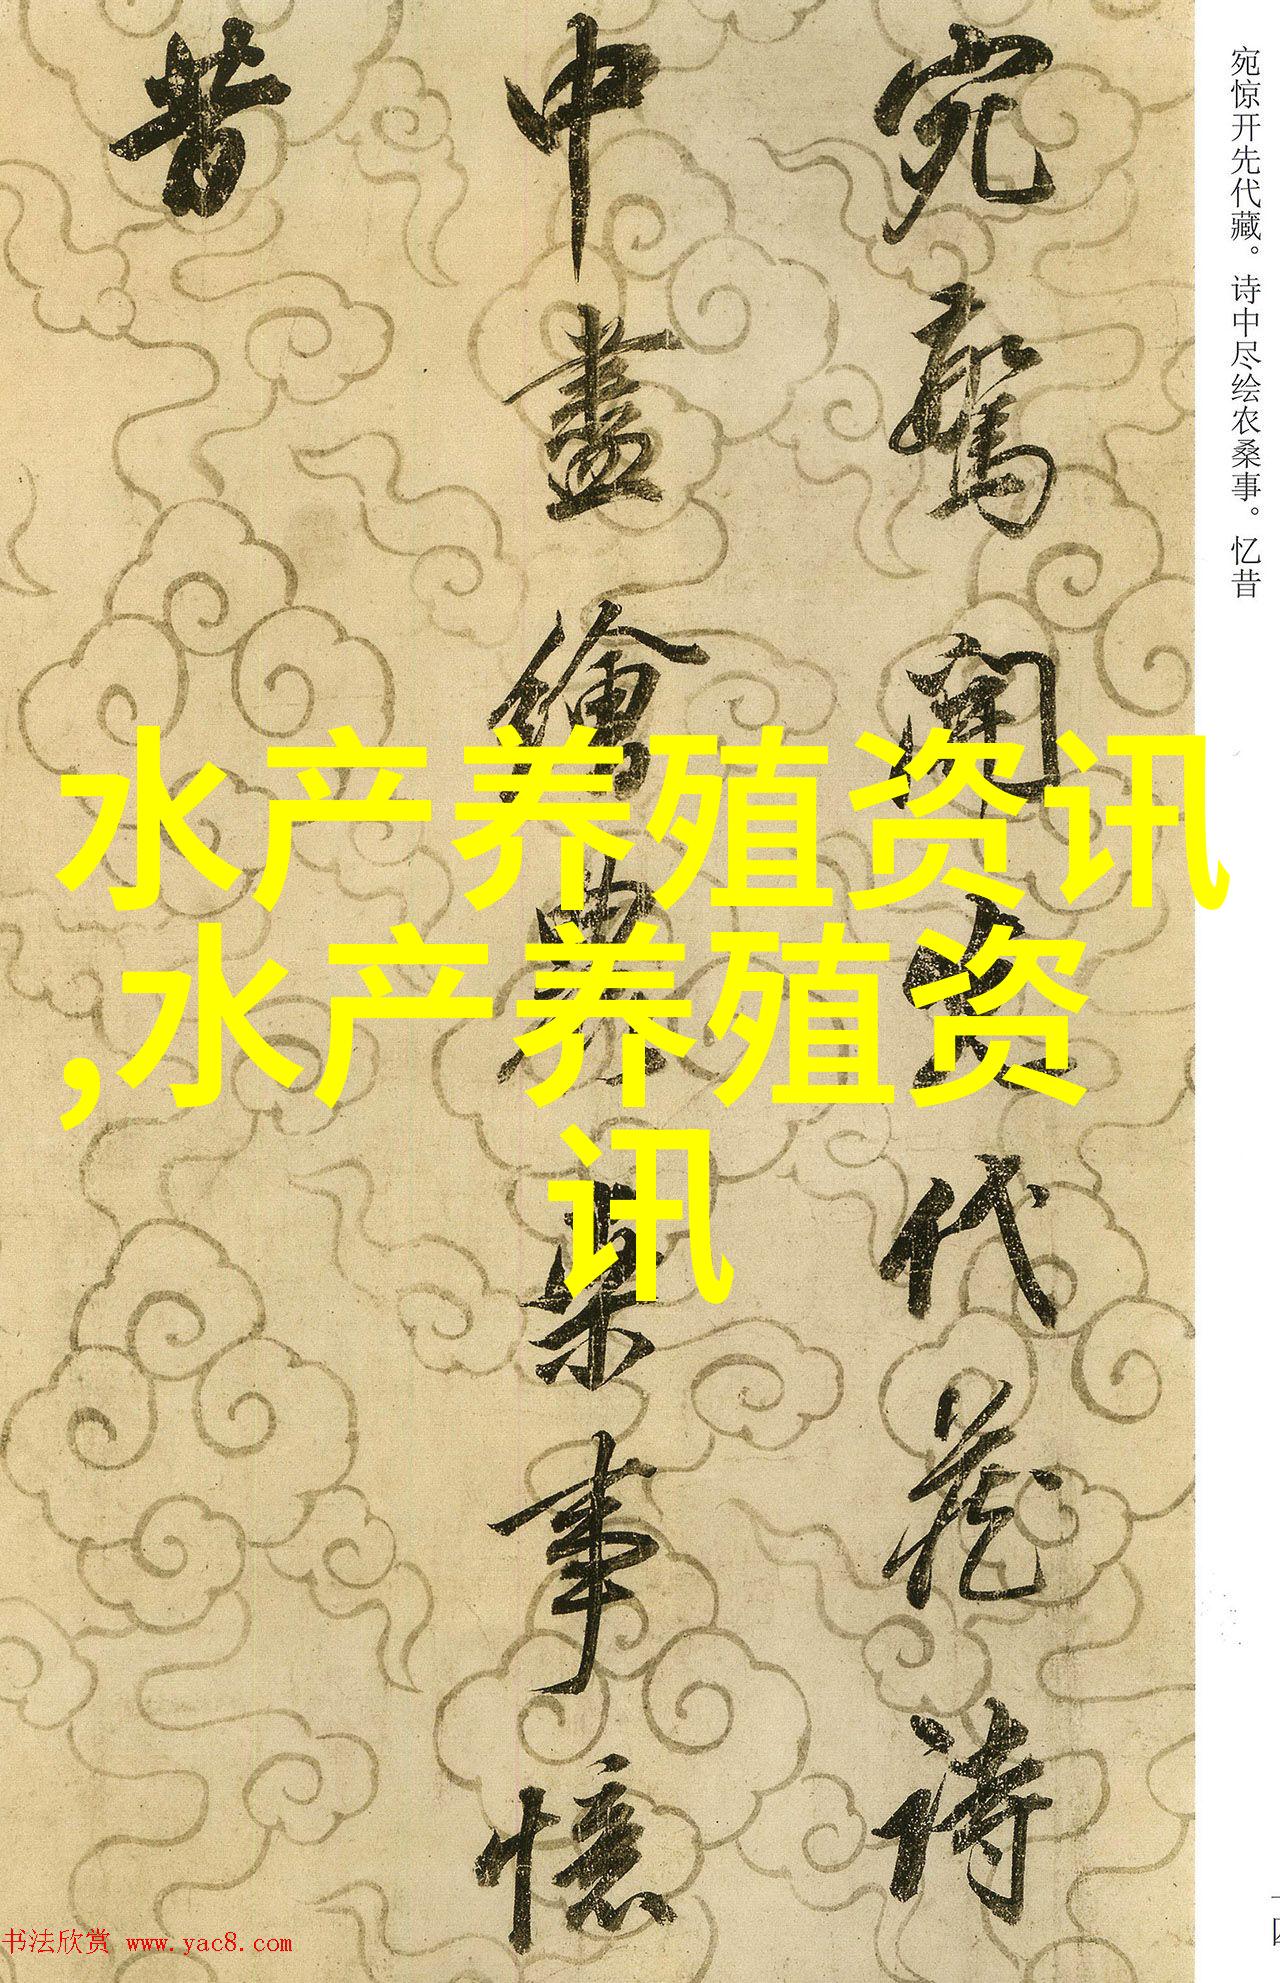 宛驚開先代藏詩
中盡繪農桑事憶
昔
宛惊开先代藏。诗中尽绘农桑事。忆昔
水产养殖资讯
,水产养殖资
讯
书法欣赏 www.yac8.com